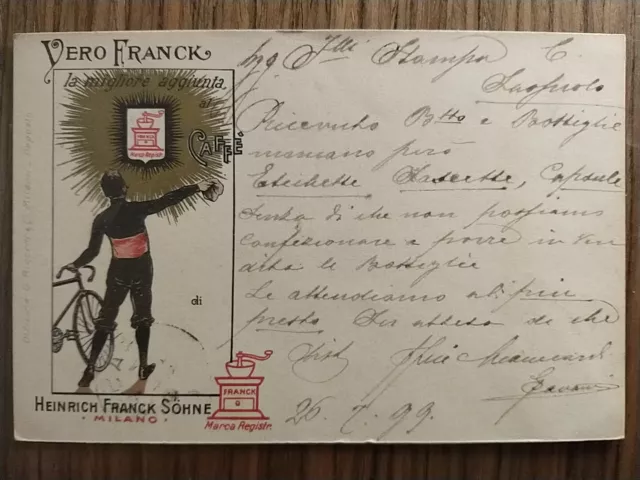 VERO FRANCK
la migliore aggiunta
al
CAFFÈ
FRANCK
Marca Registr.
di
HEINRICH FRANCK SÖHNE
· MILANO ·
FRANCK
Marca Registr.
Flli Stampa C.
Ricevuto Btto e Bottiglie
mancano però
Etichette Fascette, Capsule
Senza di che non possiamo
confezionare a porre in ven
dita le Bottiglie
Le attendiamo al più
presto In attesa di che
26. 7. 99.